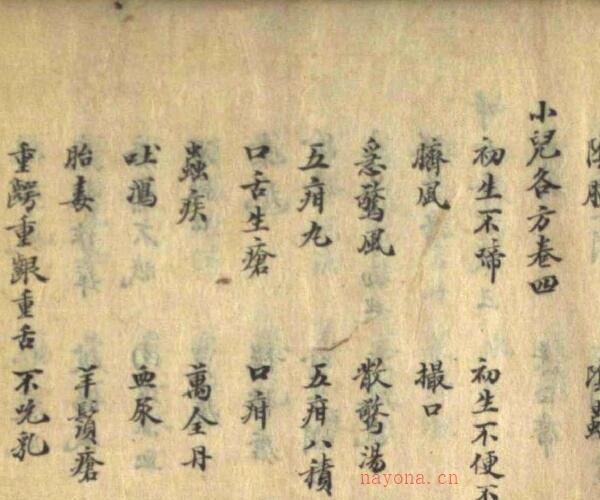 小兒各方卷四
初生不啼 初生不便
臍風 撮口
急驚風 散驚湯
五疳丸 五疳八積
口舌生瘡 口疳
蟲疾 萬全丹
吐瀉 血尿
胎毒 羊鬍瘡
重齶重齦重舌 不吃乳
nayona.cn